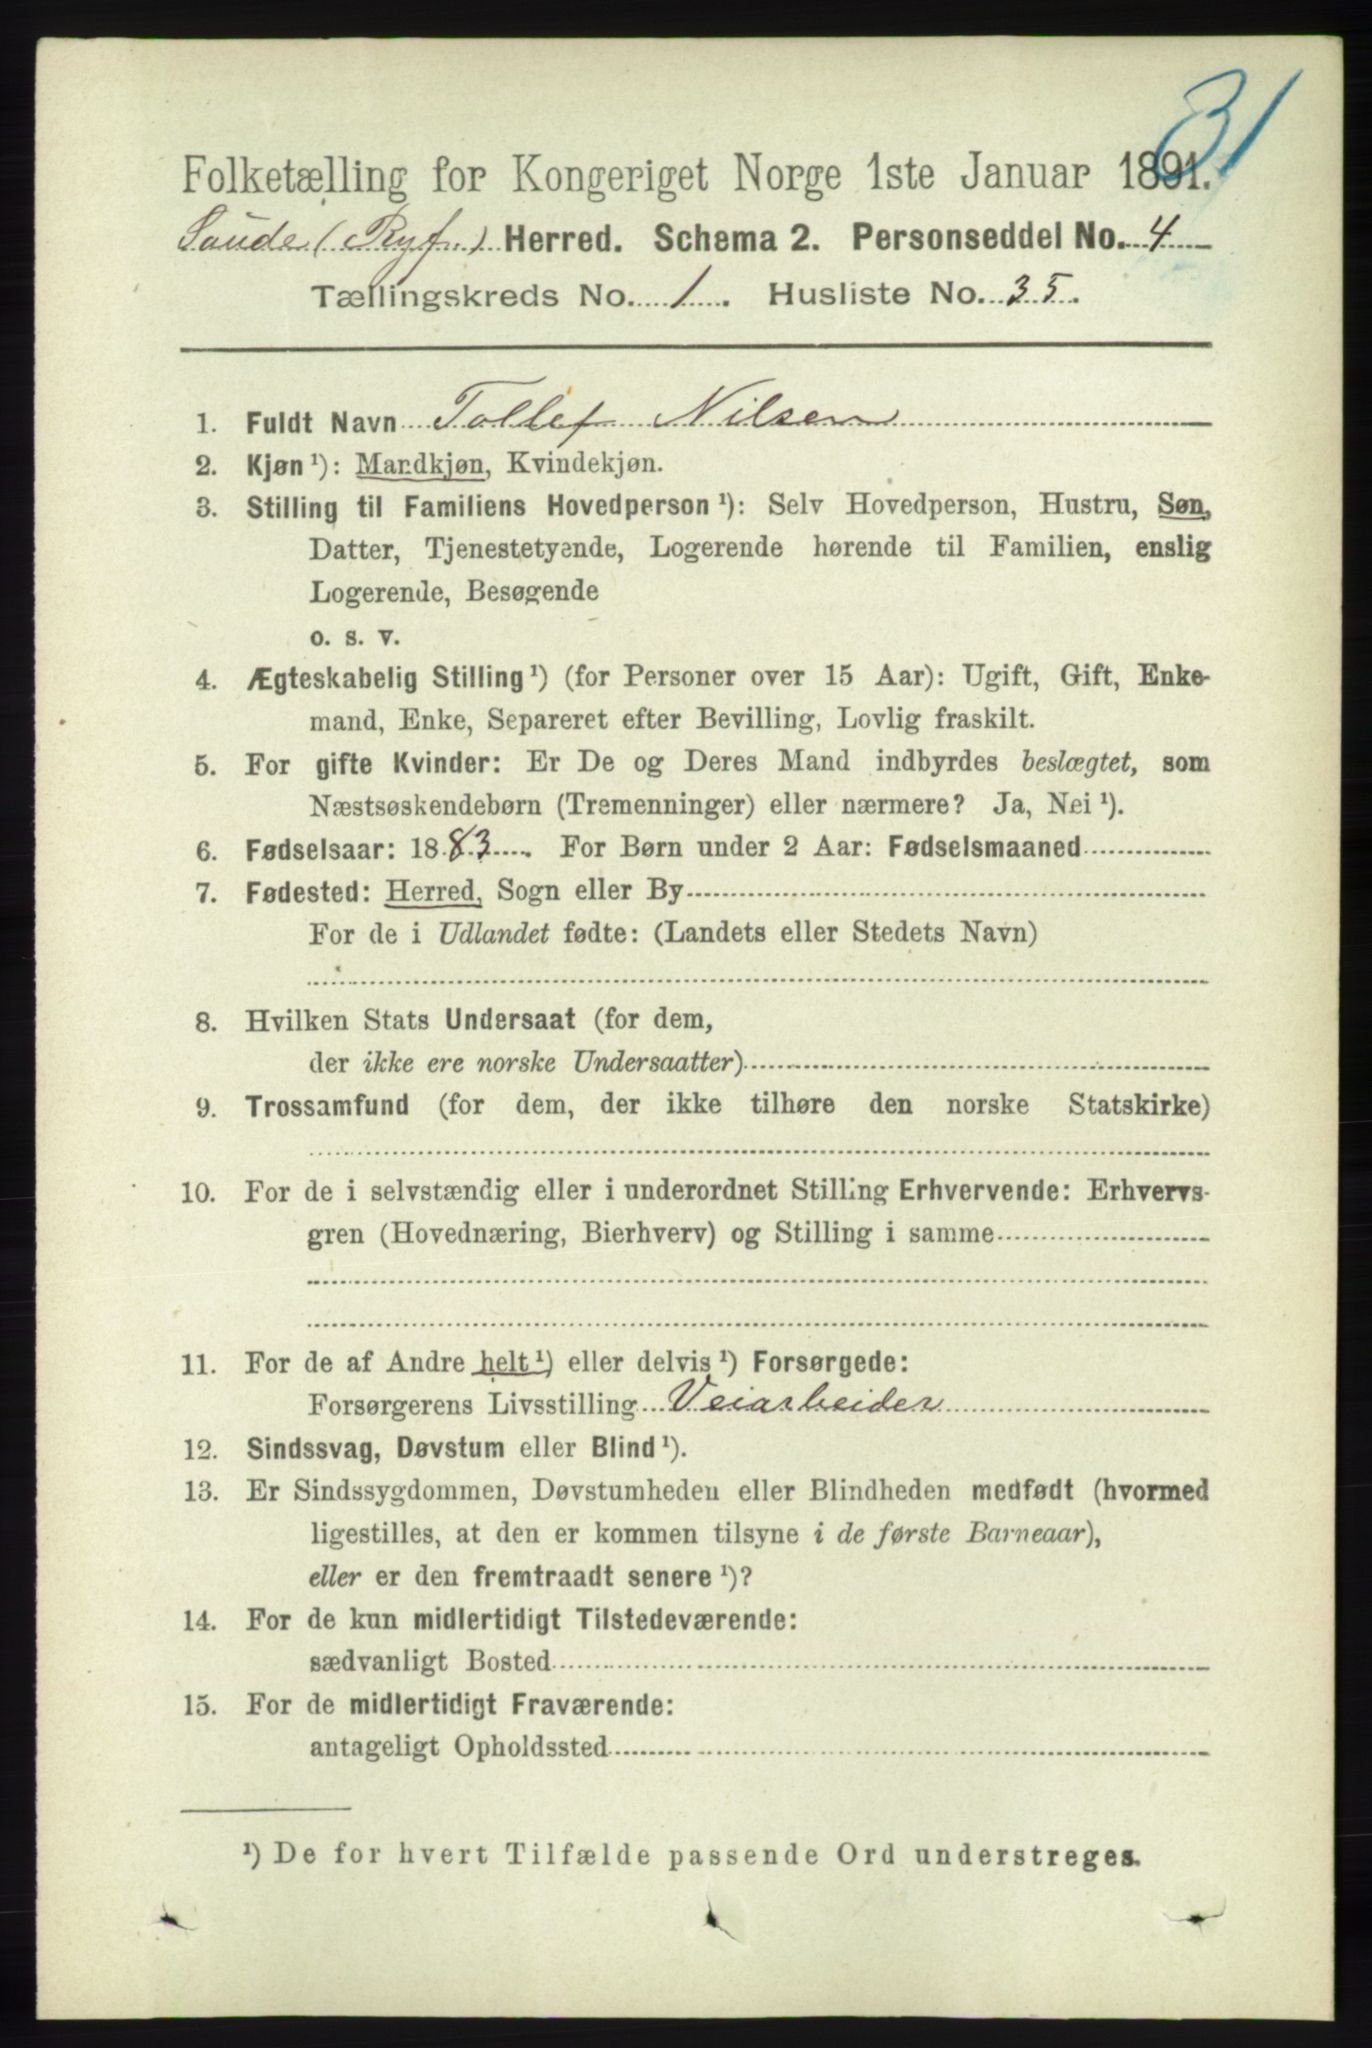 31
Folketælling for Kongeriget Norge 1ste Januar 1891.
Saude (Ryf.) Herred. Schema 2. Personseddel No. 4
Tællingskreds No. 1. Husliste No. 35.
1. Fuldt Navn Tollef Nilsen
2. Kjøn ¹): Mandkjøn, Kvindekjøn.
3. Stilling til Familiens Hovedperson ¹): Selv Hovedperson, Hustru, Søn,
Datter, Tjenestetyende, Logerende hørende til Familien, enslig
Logerende, Besøgende
o. s. v.
4. Ægteskabelig Stilling ¹) (for Personer over 15 Aar): Ugift, Gift, Enke-
mand, Enke, Separeret efter Bevilling, Lovlig fraskilt.
5. For gifte Kvinder: Er De og Deres Mand indbyrdes beslægtet, som
Næstsøskendebørn (Tremenninger) eller nærmere? Ja, Nei ¹).
6. Fødselsaar: 1883. For Børn under 2 Aar: Fødselsmaaned
7. Fødested: Herred, Sogn eller By
For de i Udlandet fødte: (Landets eller Stedets Navn)
8. Hvilken Stats Undersaat (for dem,
der ikke ere norske Undersaatter)
9. Trossamfund (for dem, der ikke tilhøre den norske Statskirke)
10. For de i selvstændig eller i underordnet Stilling Erhvervende: Erhvervs-
gren (Hovednæring, Bierhverv) og Stilling i samme
11. For de af Andre helt ¹) eller delvis ¹) Forsørgede:
Forsørgerens Livsstilling Veiarbeider
12. Sindssvag, Døvstum eller Blind ¹).
13. Er Sindssygdommen, Døvstumheden eller Blindheden medfødt (hvormed
ligestilles, at den er kommen tilsyne i de første Barneaar),
eller er den fremtraadt senere ¹)?
14. For de kun midlertidigt Tilstedeværende:
sædvanligt Bosted
15. For de midlertidigt Fraværende:
antageligt Opholdssted
¹) De for hvert Tilfælde passende Ord understreges.